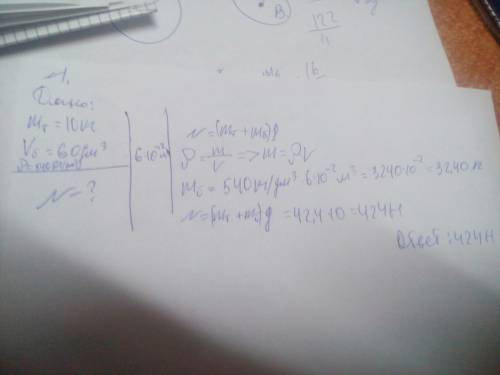 B
122
11
1.
Дано:
mт = 10 кг
Vб = 60 дм³
N = ?
6·10⁻² м³
N = (mт + mб)g
ρ = m/V => m = ρV
mб = 540 кг/дм³ 6·10⁻² м³ = 3240·10⁻² = 32,40 кг
N = (mт + mб)g = 42,4·10 = 424 Н
Ответ: 424 Н